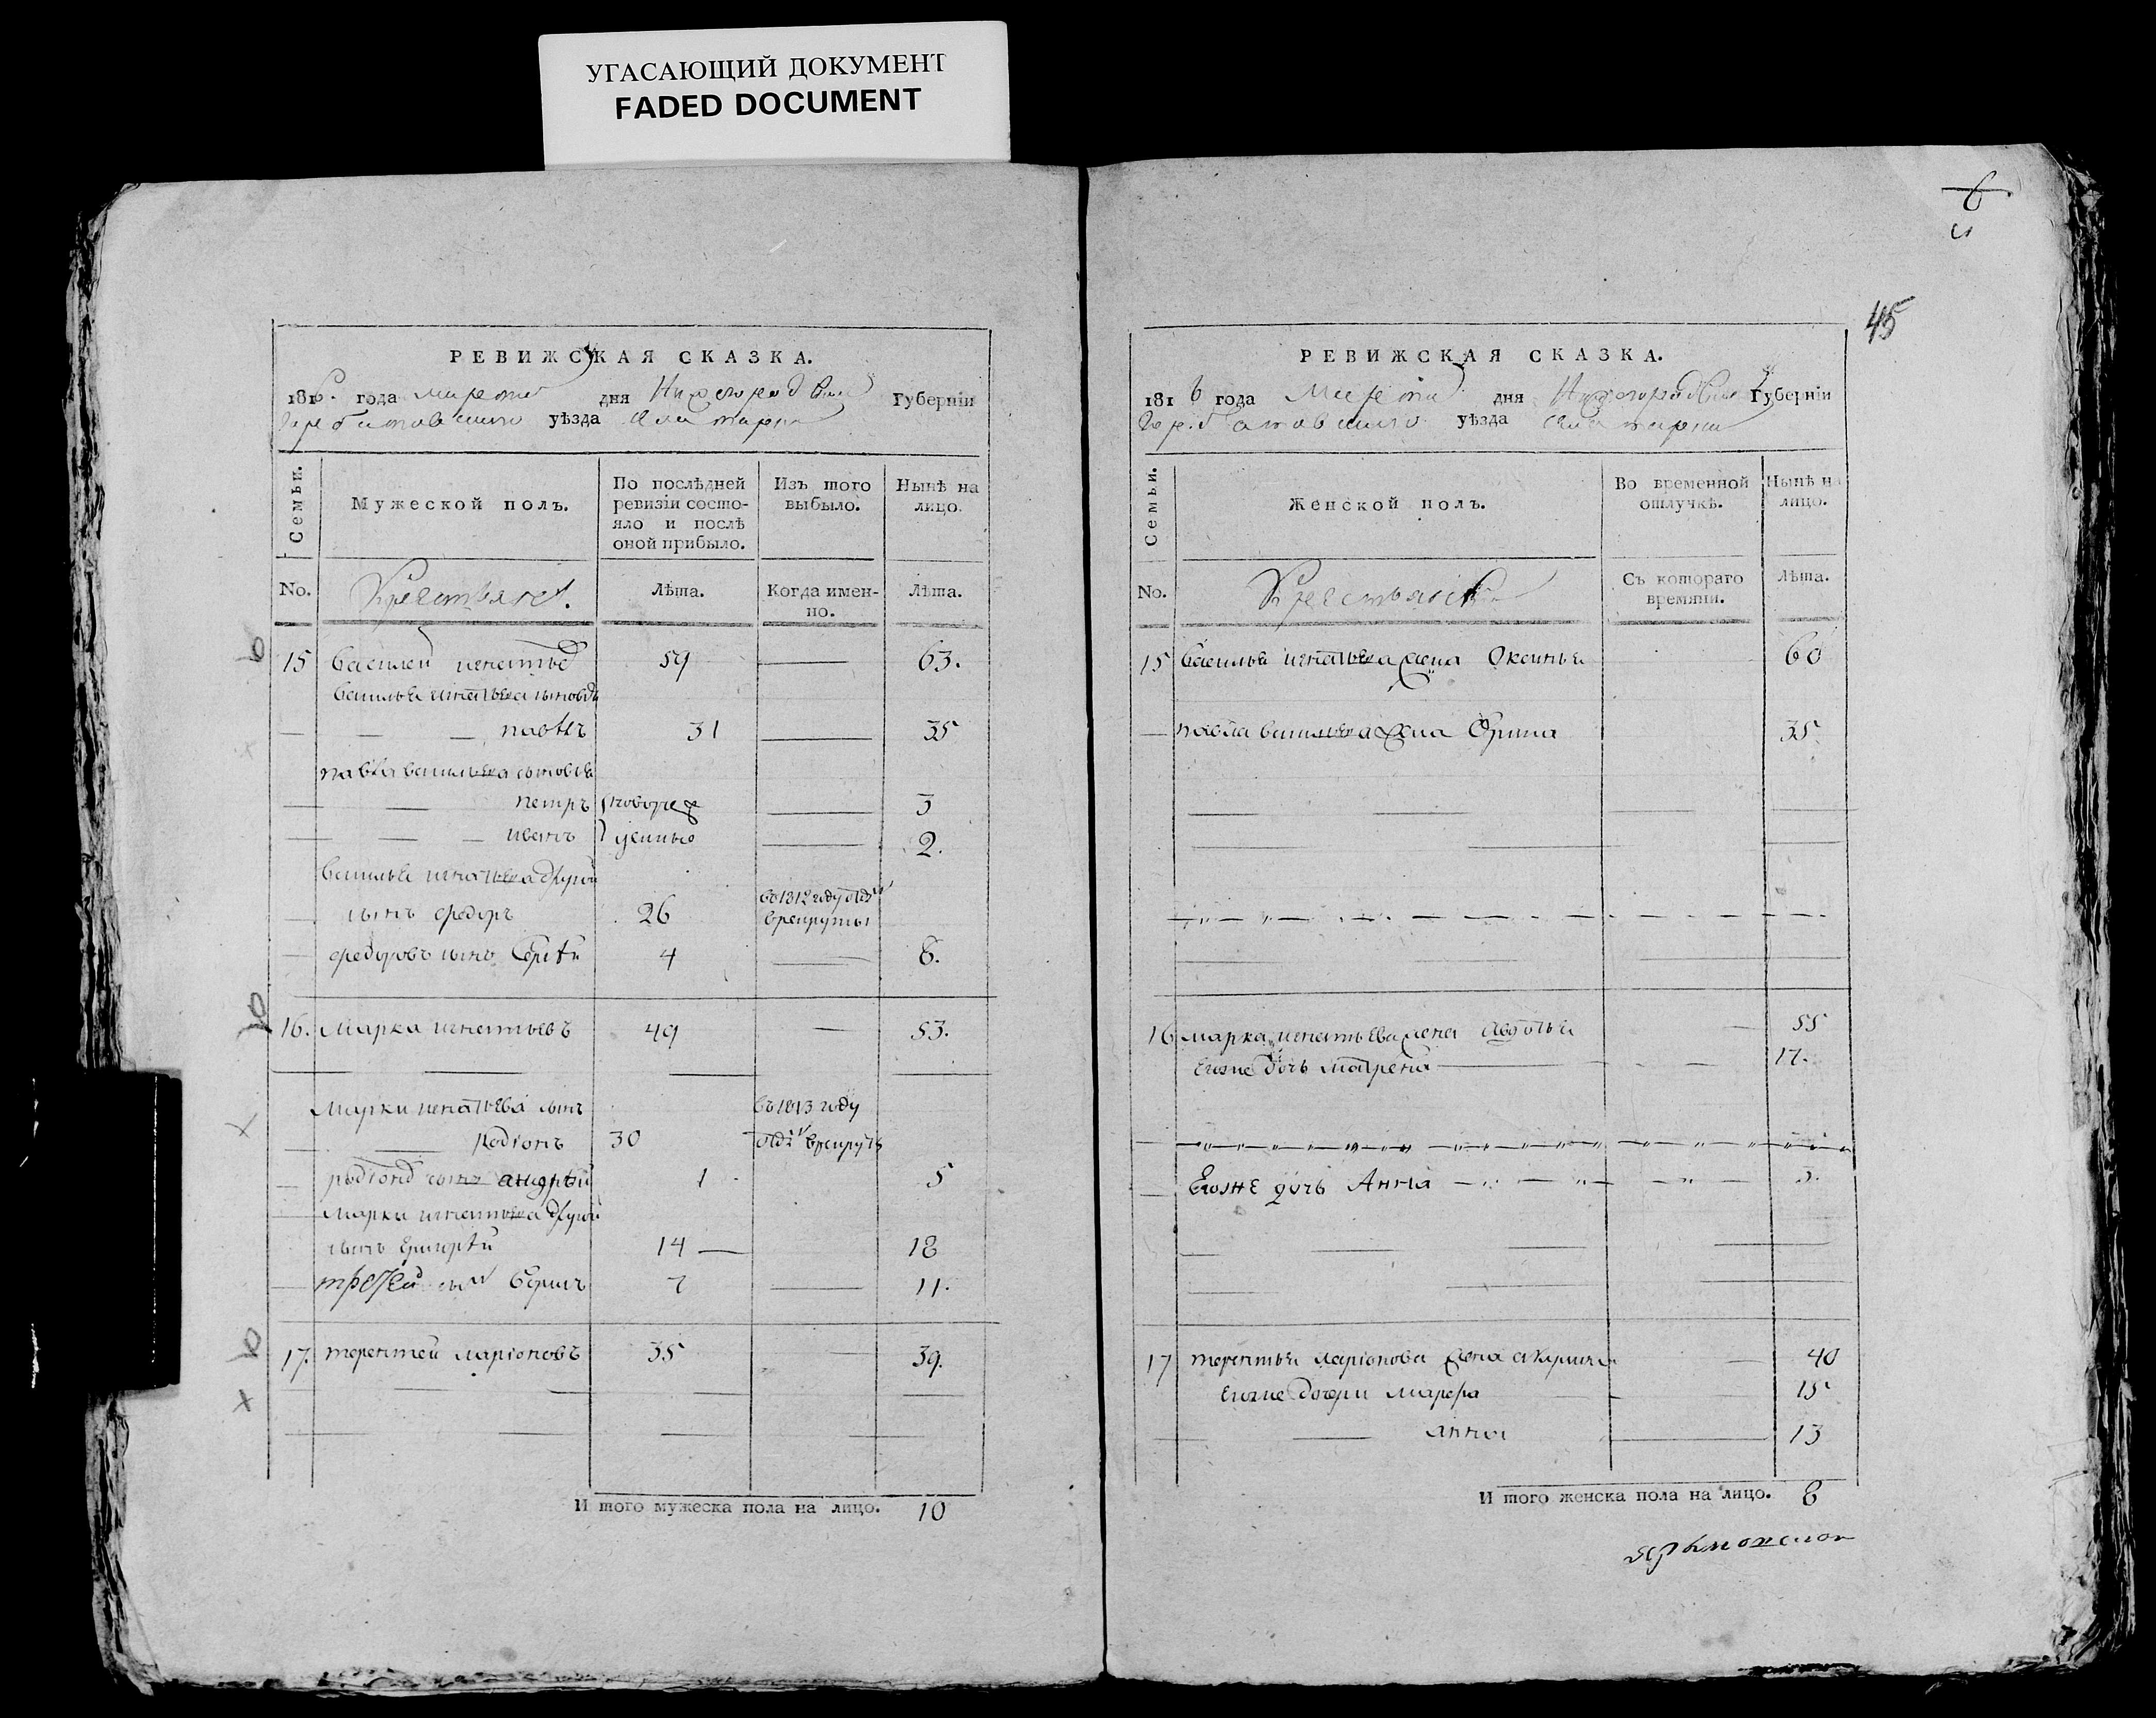 УГАСАЮЩИЙ ДОКУМЕНТ
FADED DOCUMENT
РЕВИЖСКАЯ СКАЗКА.
1816. года марта дня Нижегородской Губернїи
Горбатовского уѣзда села
Семьи.
Мужеской полъ.
По послѣдней ревизїи состояло и послѣ оной прибыло.
Изъ того выбыло.
Нынѣ на лицо.
No.
Крестьяне.
Лѣта.
Когда именно.
Лѣта.
15 Василей игнатьев 59 63.
василья игнатьева сыновья
павелъ 31 35
павла васильева сыновья
петръ новорож 3
иванъ денные 2.
василья игнатьева другой
сынъ федоръ 26 въ 1812 году отдан в рекруты
федоровъ сынъ Сергѣй 4 8.
16. Марка игнатьевъ 49 53.
Марки игнатьева сынъ въ 1813 году
Родіонъ 30 отдан в рекруты
родіонов сынъ андрѣй 1 5
Марки игнатьева другой
сынъ Григорѣй 14 18
третей сын Борисъ 7 11.
17. терентей ларіоновъ 35 39.
И того мужеска пола на лицо. 10
6
45
РЕВИЖСКАЯ СКАЗКА.
1816 года Марта дня Нижегородской Губернїи
Горбатовского уѣзда села
Семьи.
Женской полъ.
Во временной отлучкѣ.
Нынѣ на лицо.
No.
Съ котораго времяни.
Лѣта.
15 Василья игнатьева жена Оксинья 60
павла васильева жена Орина 35
16 марка игнатьева жена Авдотья 55
Его же дочь матрена 17.
Его же дочь Анна 5.
17 терентья ларіонова жена акулина 40
Его же дочери марфа 15
анна 13
И того женска пола на лицо. 8